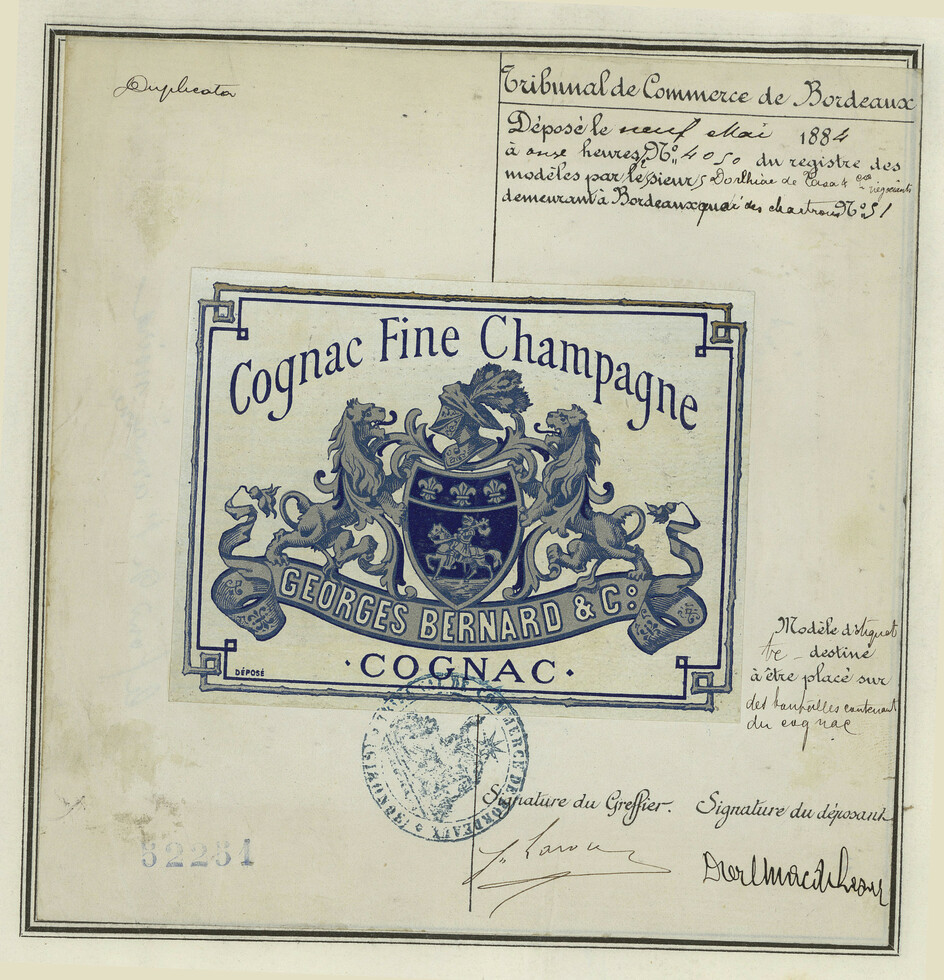 Duplicata
Tribunal de Commerce de Bordeaux
Déposé le neuf Mai 1884
à onze heures, No. 4050 du registre des
modèles par les sieurs Dorlhiac de & Co négociants
demeurant à Bordeaux quai des chartrons No. 51
Cognac Fine Champagne
GEORGES BERNARD & Co:
· COGNAC ·
DÉPOSÉ
Modèle d'étiquet
te - destiné
à être placé sur
des bouteilles contenant
du cognac
COMMERCE DE BORDEAUX
Signature du Greffier. Signature du déposant
52251